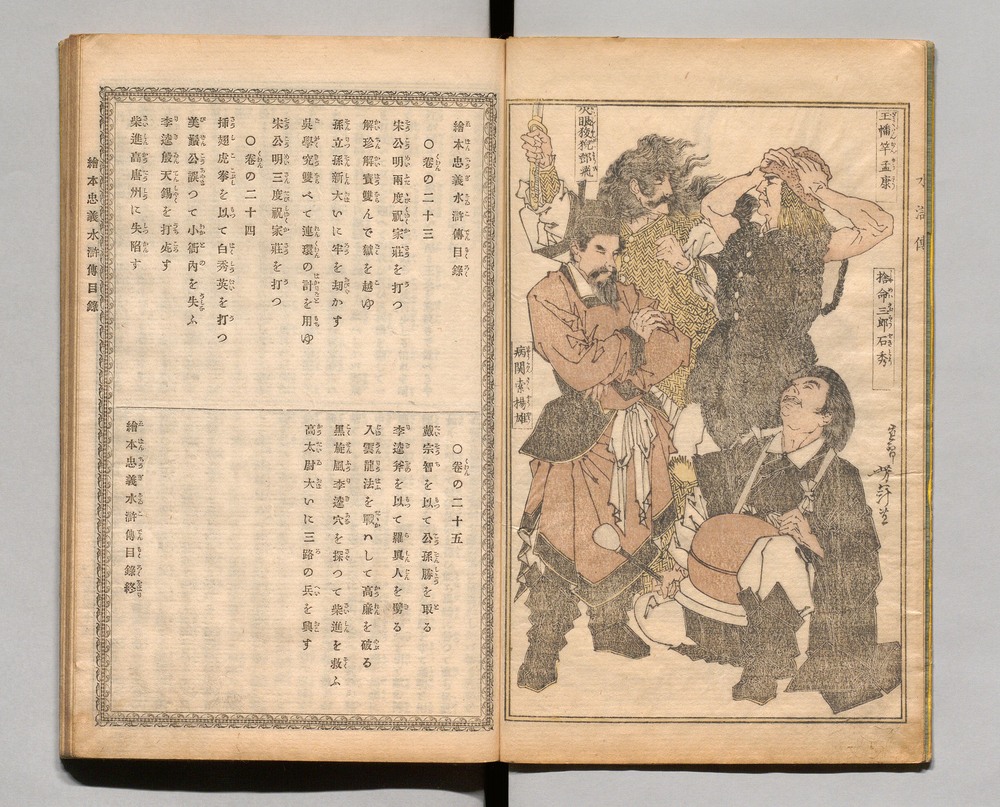 水滸傳
玉幡竿孟康
捨命三郎石秀
火眼狻猊鄧飛
病関索楊雄
繪本忠義水滸傳目錄
○卷の二十三
宋公明兩度祝家莊を打つ
解珍解寶雙んで獄を越ゆ
孫立孫新大いに牢を劫かす
吳學究雙べて連環の計を用ゆ
宋公明三度祝家莊を打つ
○卷の二十四
揷翅虎拳を以て白秀英を打つ
美髯公誤つて小衙內を失ふ
李逵殷天錫を打死す
柴進高唐州に失陷す
○卷の二十五
戴宗智を以て公孫勝を取る
李逵斧を以て羅眞人を劈る
入雲龍法を戰はして高廉を破る
黑旋風李逵穴を探つて柴進を救ふ
高太尉大いに三路の兵を興す
繪本忠義水滸傳目錄終
繪本忠義水滸傳目錄